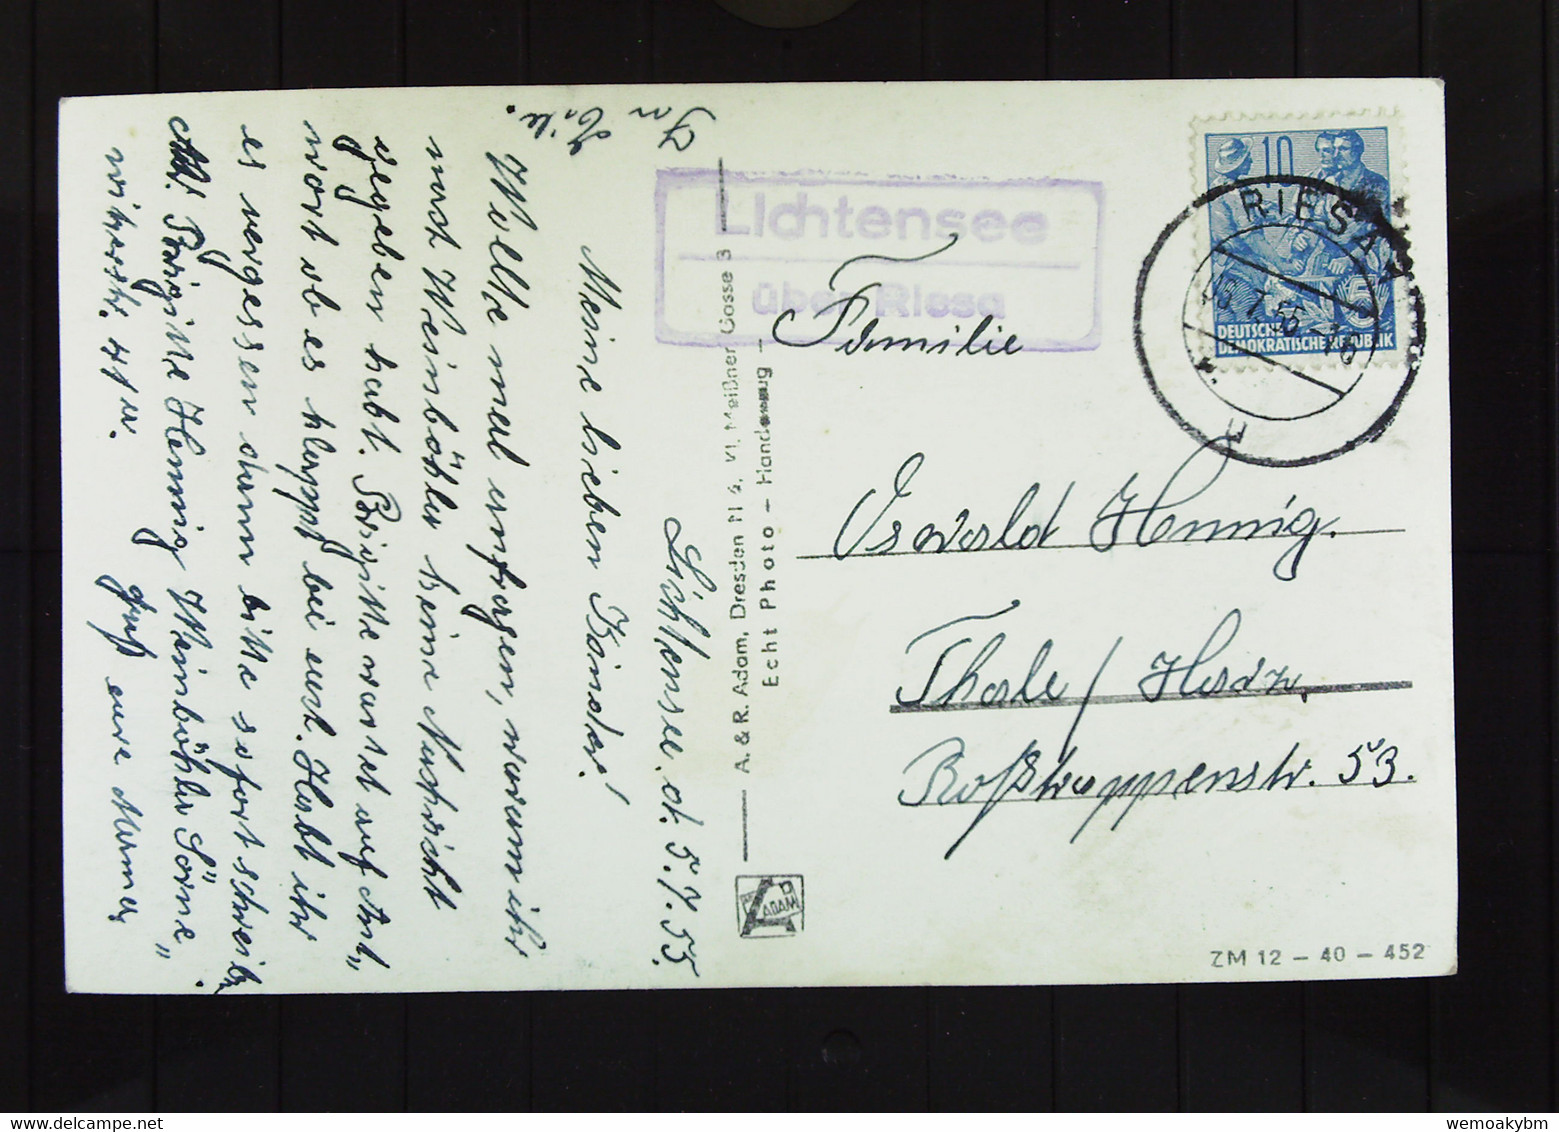 In
Eile.
Lichtensee. d. 5.7.55.
Meine lieben Kinder!
Wollte mal anfragen, warum ihr
nach Weinböhla keine Nachricht
gegeben habt. Brigitte wartet auf Ant„
wort ob es klappt bei euch. Habt ihr
es vergessen dann bitte sofort schreib.
Brigitte Hennig Weinböhla Sörne„
witzerstr. 41
Gruß eure Mama
A. & R. Adam, Dresden N 6, Meißner Gasse 3
Echt Photo – Handabzug –
ADAM
Lichtensee
über Riesa
10
DEUTSCHE
DEMOKRATISCHE REPUBLIK
RIESA 1
Familie
Oswald Hennig.
Thale / Harz.
Roßtrappenstr. 53.
ZM 12 – 40 – 452
wemoakybm